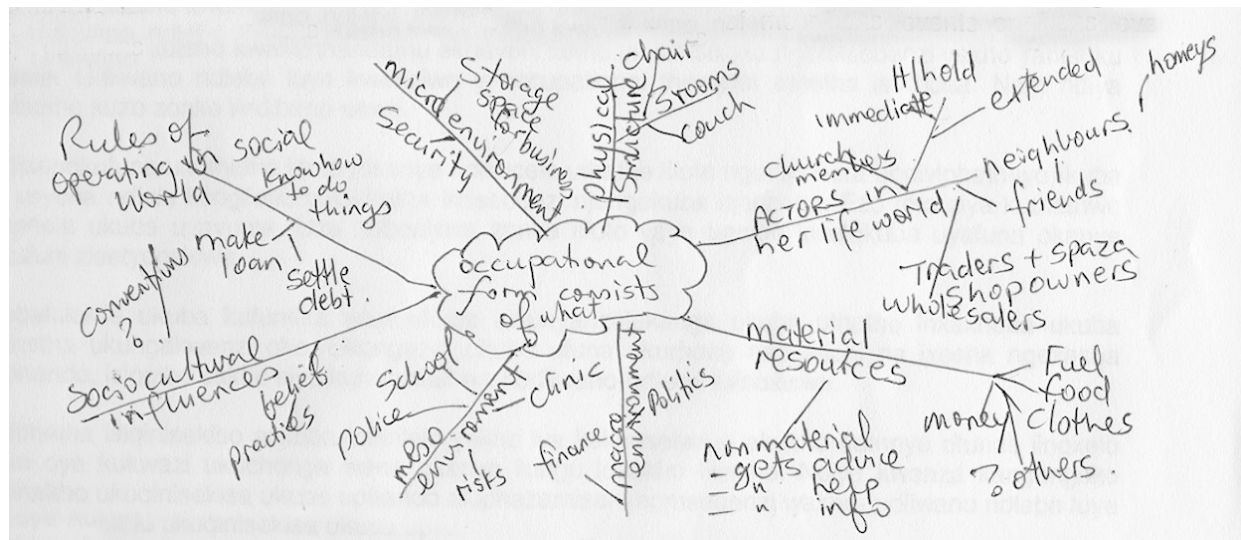 occupational
form consists
of what?
Rules of
operating in
world
social
know how
to do
things
make
loan
settle
debt.
conventions
?
Sociocultural
influences
belief
practies
micro environment
security
Storage
space
for business
physical
structure
chair
3 rooms
couch
Actors in
her lifeworld
church
mem
immediate
H/hold
extended
neighbours,
homeys
friends
Traders + spaza
shopowners
whole
salers
Material
resources
Fuel
food
clothes
money
? others.
nonmaterial
- gets advice
- " info
environment
Politics
finance
meso
environment
School
police
clinic